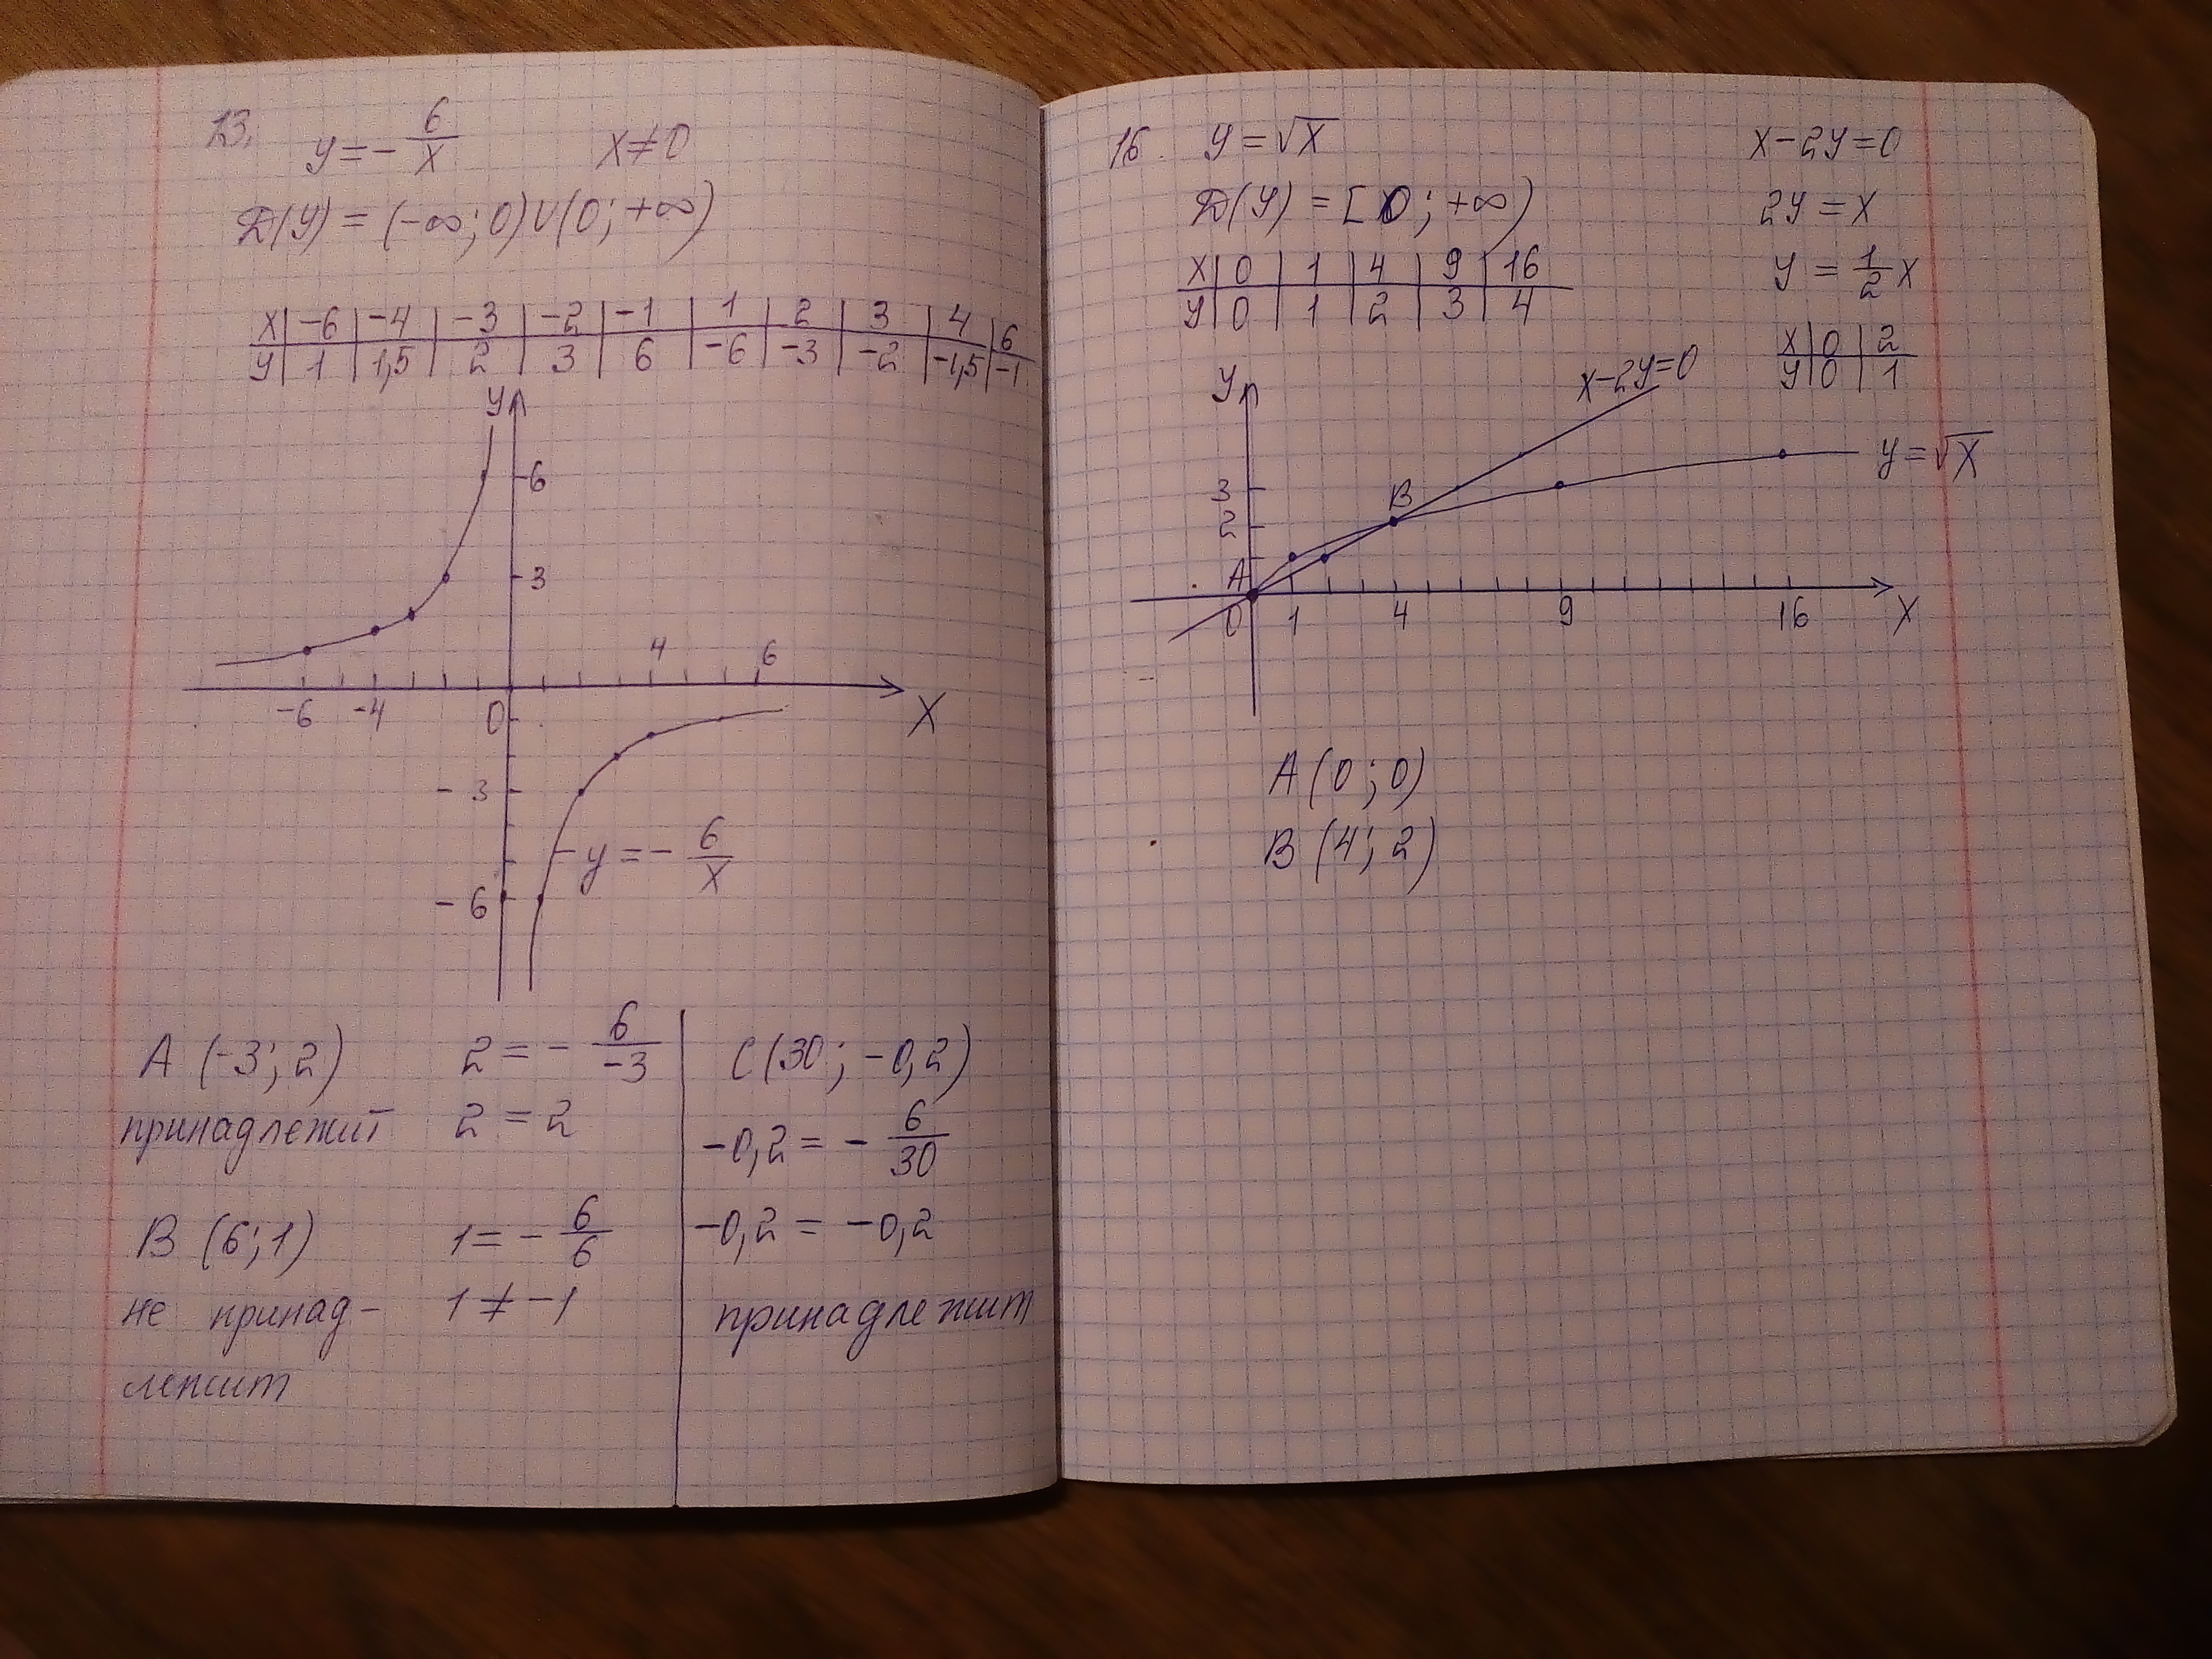 13. y = - 6/x x ≠ 0
D(y) = (-∞; 0) ∪ (0; +∞)
x | -6 | -4 | -3 | -2 | -1 | 1 | 2 | 3 | 4 | 6
y | 1 | 1,5 | 2 | 3 | 6 | -6 | -3 | -2 | -1,5 | -1
y
6
3
4 6
-6 -4 0 x
-3
y = - 6/x
-6
A (-3; 2) 2 = - 6/-3
принадлежит 2 = 2
B (6; 1) 1 = - 6/6
не принад- 1 ≠ -1
лежит
C (30; -0,2)
-0,2 = - 6/30
-0,2 = -0,2
принадлежит
16. y = √x
D(y) = [0; +∞)
x | 0 | 1 | 4 | 9 | 16
y | 0 | 1 | 2 | 3 | 4
x - 2y = 0
2y = x
y = 1/2 x
x | 0 | 2
y | 0 | 1
y x - 2y = 0
y = √x
3 B
2
A
0 1 4 9 16 x
A (0; 0)
B (4; 2)